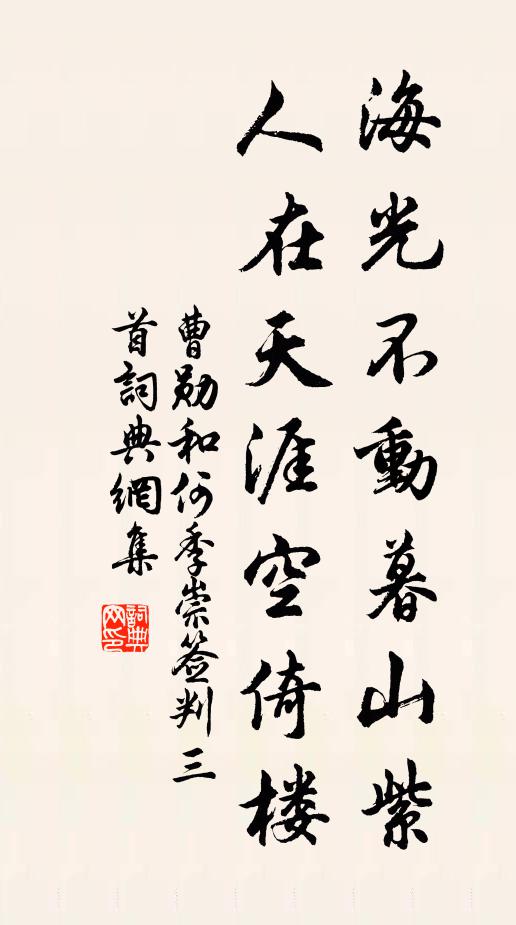 海光不動暮山紫
人在天涯空倚楼
曹勛和何季崇签判三
首詞典網集
詞典网印